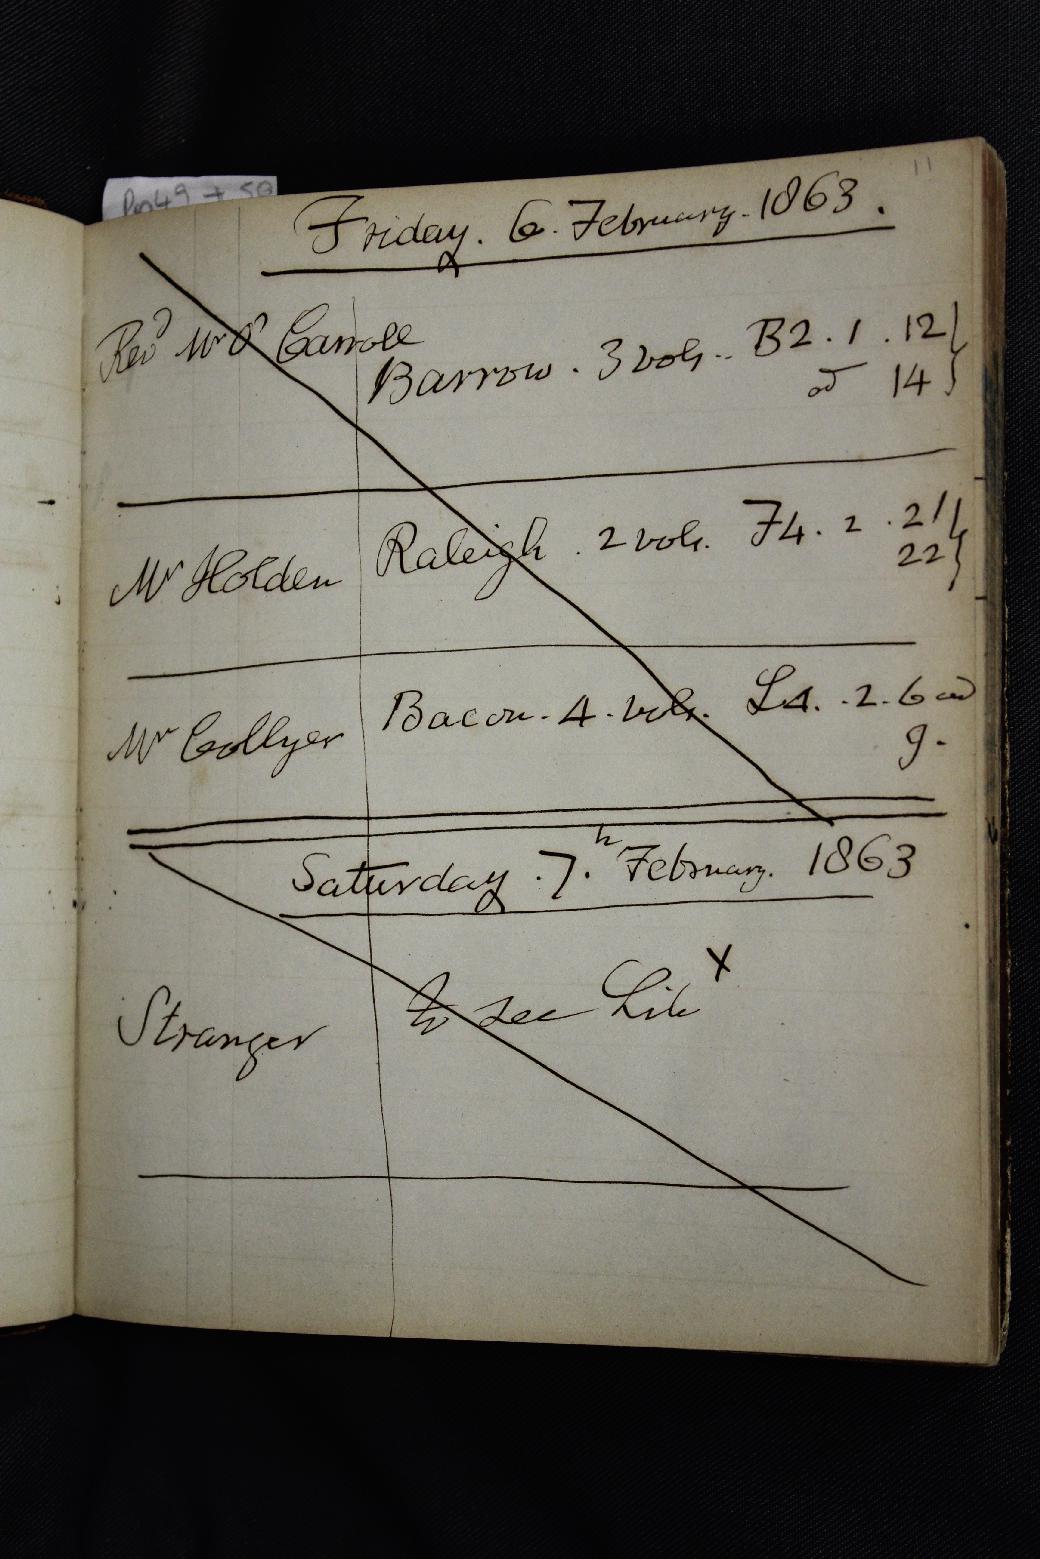 11
Friday. 6. February. 1863.
Revd Mr O' Carroll
Barrow. 3 vols.. B2. 1. 12
14
Mr Holden Raleigh. 2 vols. F4. 2. 21
22
Mr Collyer Bacon. 4. vols. L4. 2. 6 and
9.
Saturday. 7.h February. 1863
Stranger to see Lib x